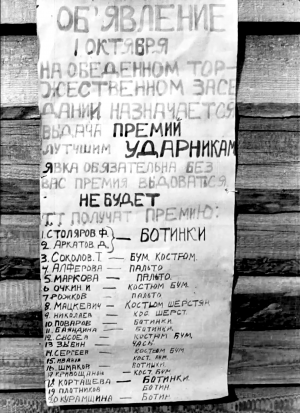 ОБ'ЯВЛЕНИЕ
1 ОКТЯБРЯ
НА ОБЕДЕННОМ ТОР-
ЖЕСТВЕННОМ ЗАСЕ
ДАНИИ НАЗНАЧАЕТСЯ
ВЫДАЧА ПРЕМИЙ
ЛУТЧШИМ УДАРНИКАМ
ЯВКА ОБЯЗАТЕЛЬНА БЕЗ
ВАС ПРЕМИЯ ВЫДОВАТЬСЯ
НЕ БУДЕТ
Т.Т ПОЛУЧАТ ПРЕМИЮ:
1. СТОЛЯРОВ Ф.
2. АРКАТОВ Д. } — БОТИНКИ
3. СОКОЛОВ. Т — БУМ. КОСТЮМ.
4. АЛФЕРОВА — ПАЛЬТО
5. МАРКОВА — ПАЛЬТО.
6 ОЧКИН И — КОСТЮМ БУМ.
7 РОЖКОВ — ПАЛЬТО
8. МАЦКЕВИЧ — КОСТЮМ ШЕРСТЯН
9. НИКОЛАЕВ — КОС. ШЕРСТ.
10. ПОВАРОВ — БОТИНКИ
11. — БОТИНКИ.
12. СЫСОЕВ — КОСТЮМ БУМ.
13 ЗЫБИН — ЧАСЫ
14. СЕРГЕЕВ — КОСТЮМ БУМ.
15. — КОСТ. БУМ
16. ШМАКОВ — БОТИНКИ
17 — КОСТ. БУМ
18. КОРТАШЕВА — БОТИНКИ
19. ПЛОТНИКОВ — БОТИН
20 КУРАМШИНА — БОТИН